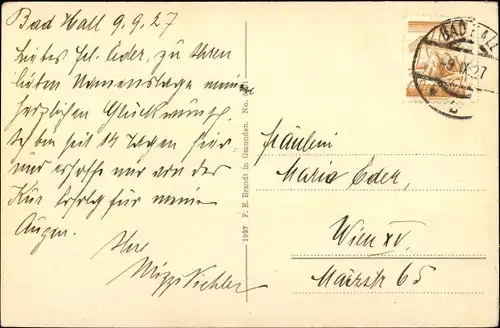 Bad Hall 9.9.27
Liebes Frl. Eder, zu Ihren
lieben Namenstage meine
herzlichen Glückwünsch.
Ich bin seit 14 Tagen hier,
und erhoffe mir von der
Kur Erfolg für meine
Augen.
Ihre
Mizzi Pichler
1927 F. E. Brandt in Gmunden. No.
BAD HALL
9.IX.27
Fräulein
Maria Eder,
Wien XV.
Märzstr 65